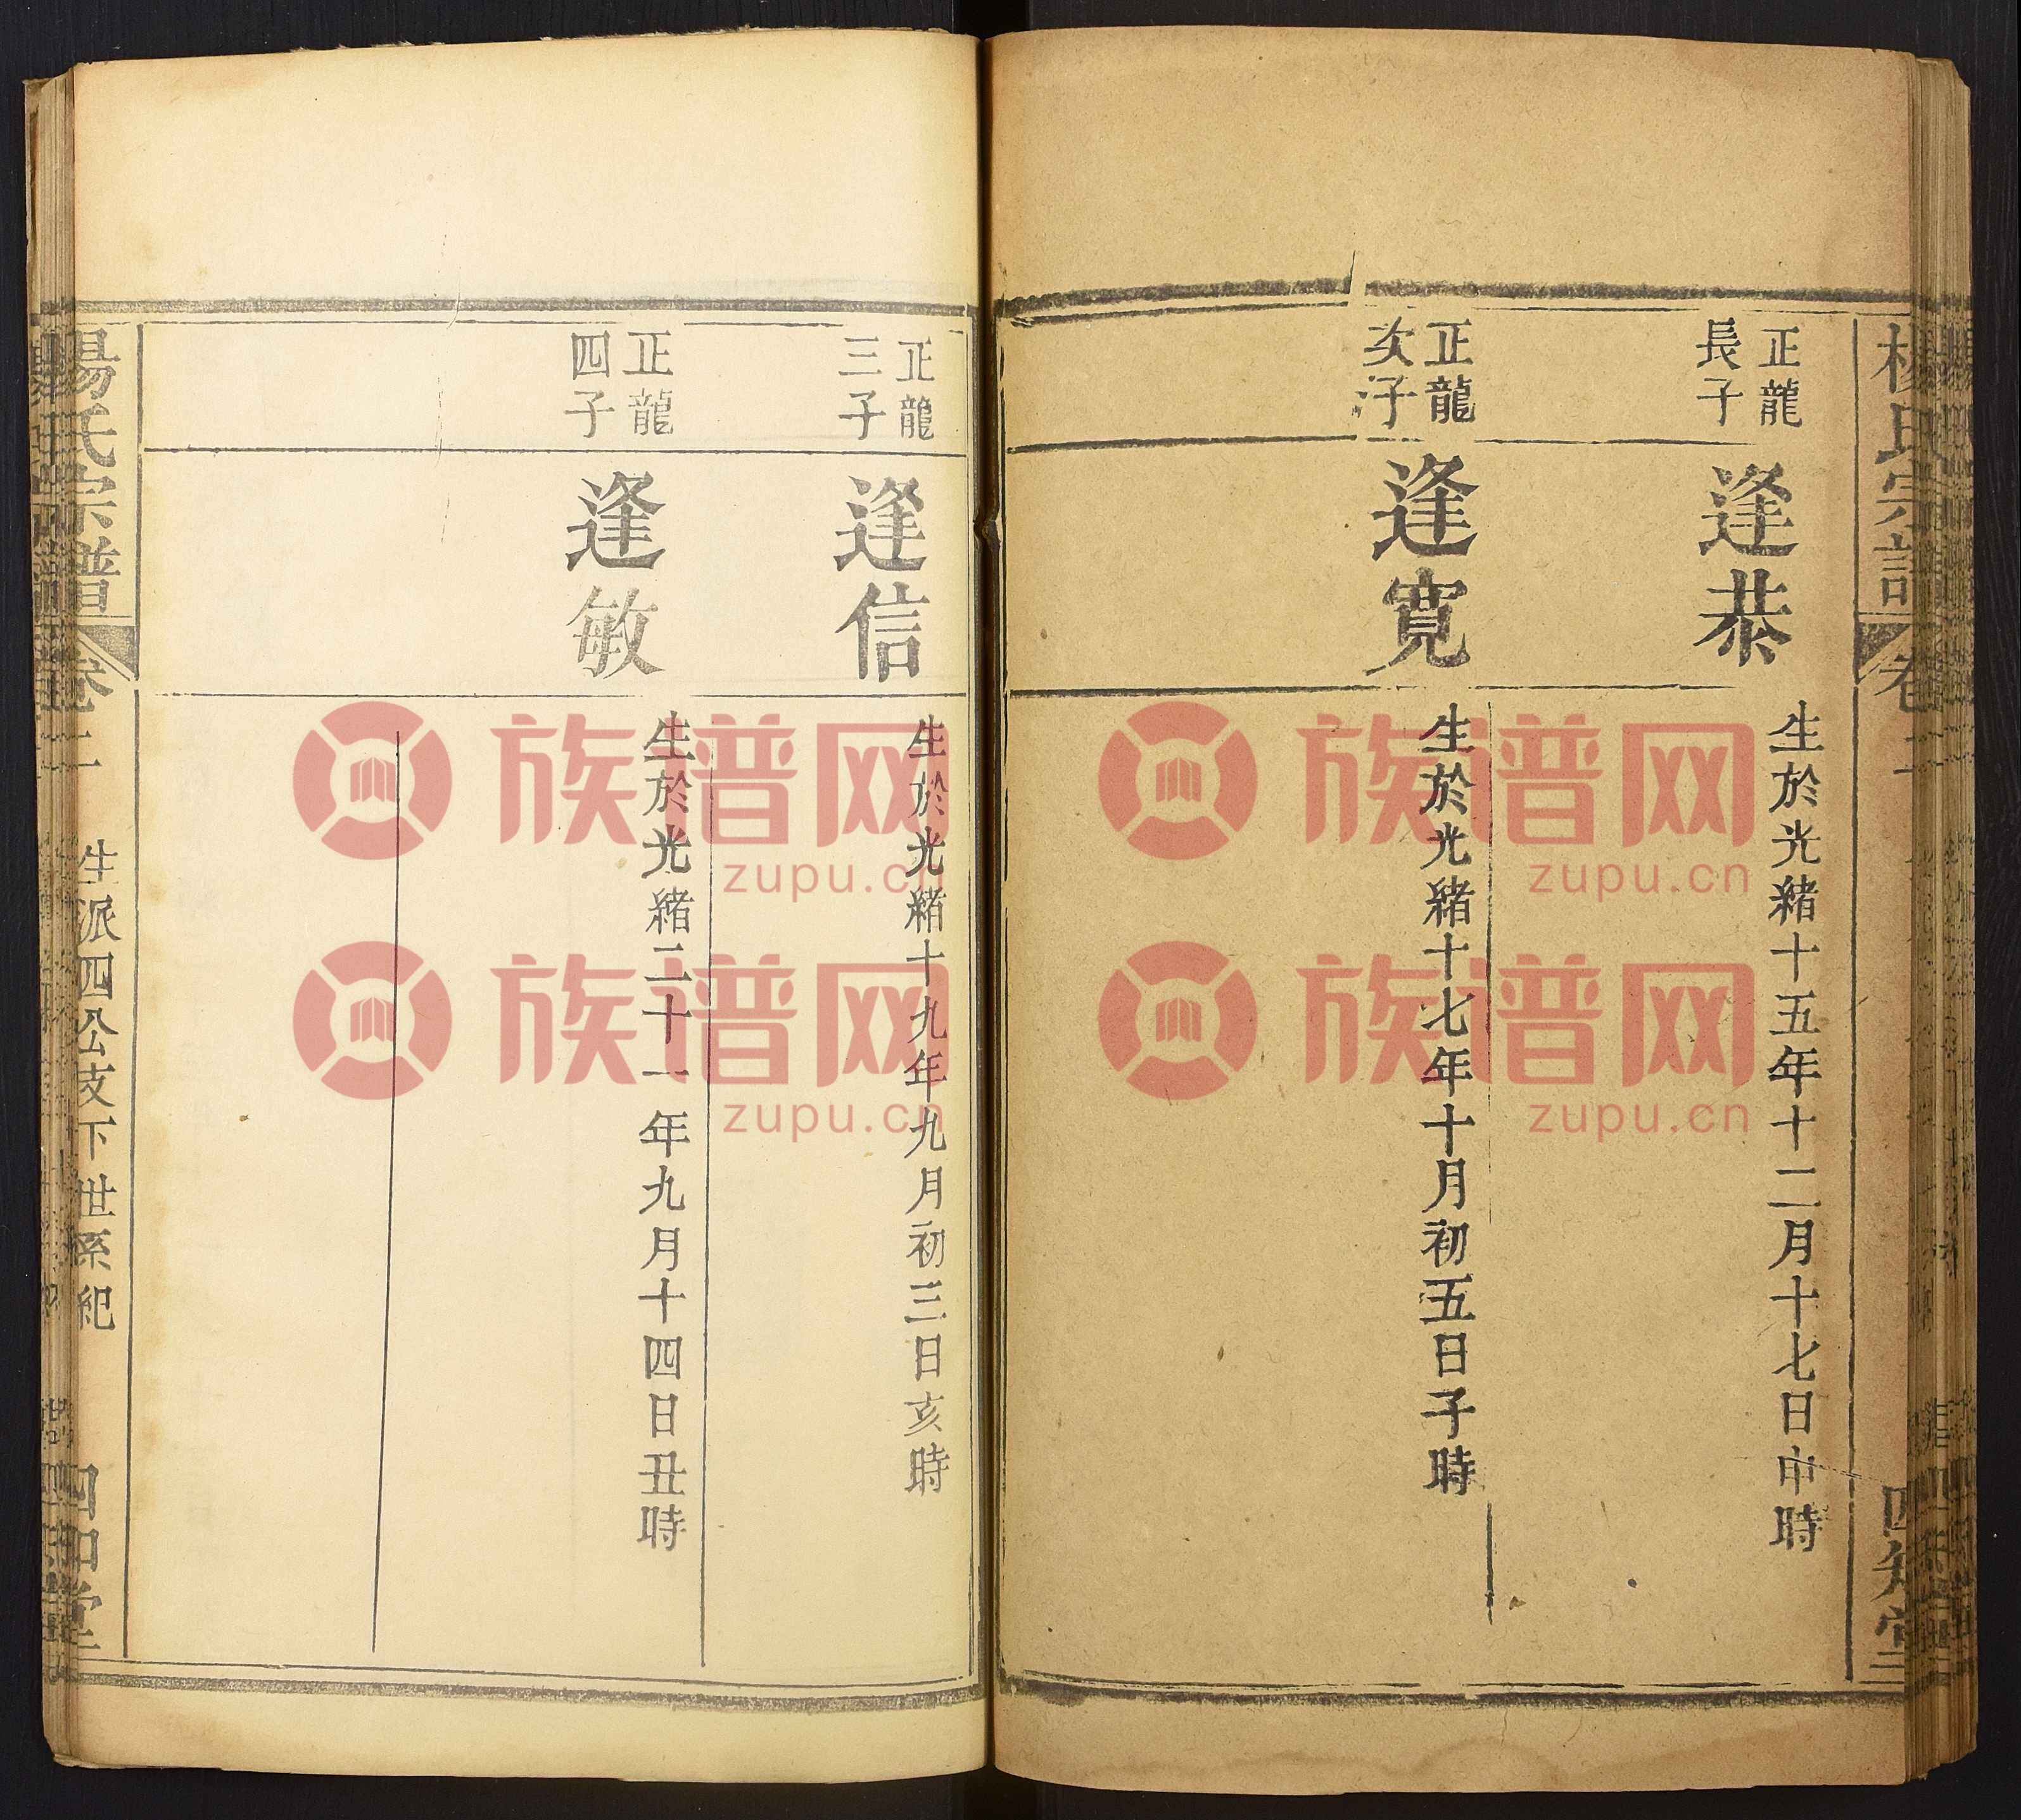 正龍
長子
逢恭
生於光緒十五年十二月十七日申時
正龍
次子
逢寬
生於光緒十七年十月初五日子時
正龍
三子
逢信
生於光緒十九年九月初三日亥時
正龍
四子
逢敏
生於光緒二十一年九月十四日丑時
楊氏宗譜
卷二
生派四公支下世系紀
四知堂
族谱网
zupu.cn
族谱网
zupu.cn
族谱网
zupu.cn
族谱网
zupu.cn